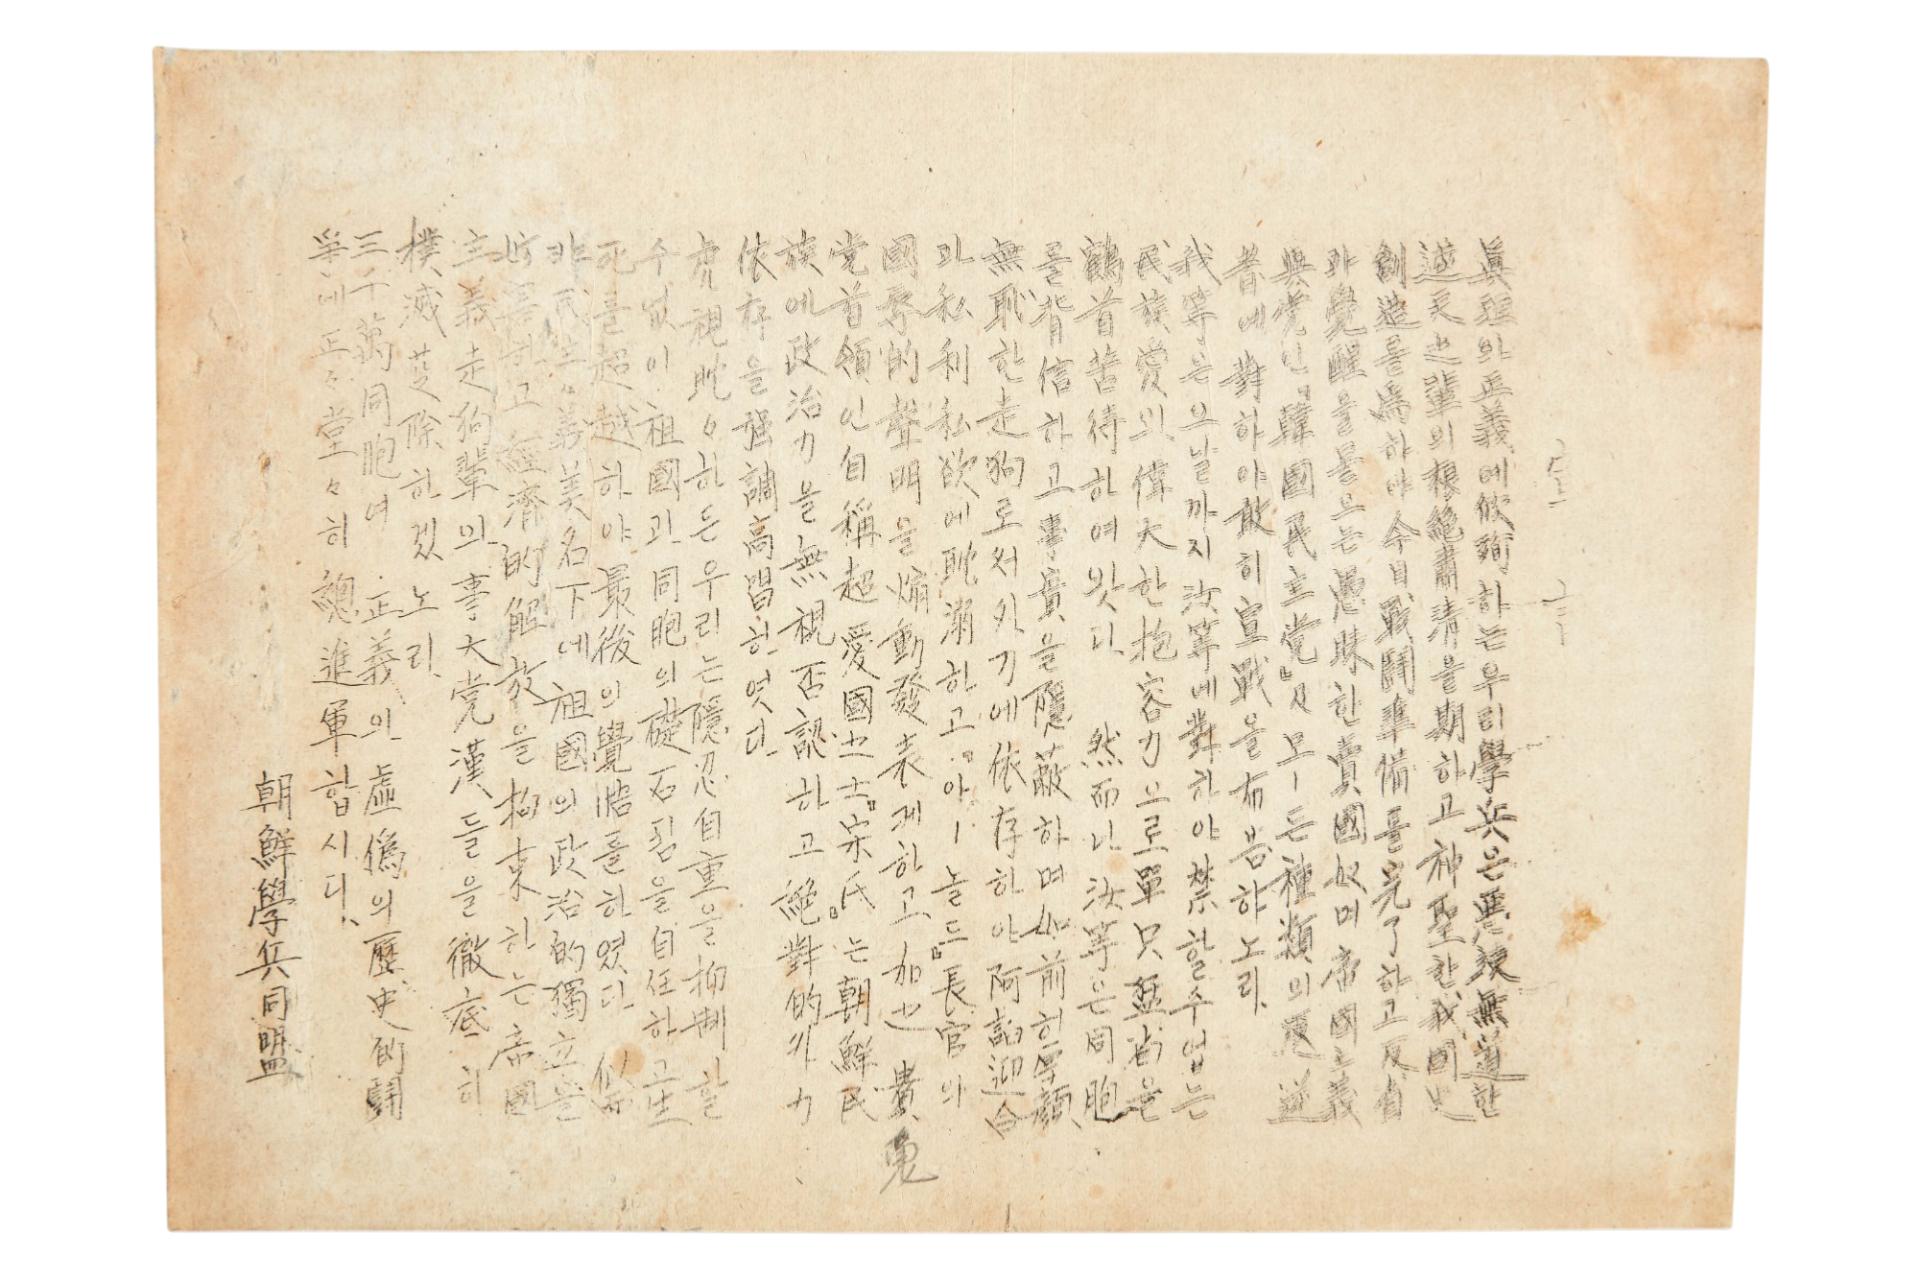 眞理와 正義에 依殉하는 우리 學兵은 惡辣無道한
逆天之輩의 根絶肅淸을 期하고 神聖한 我國史
創造를 爲하야 今日 戰鬪準備를 完了하고 反省
과 覺醒을 몰으는 愚昧한 賣國奴며 帝國主義
與党인 『韓國民主党』 及 모ー든 種類의 叛逆
者에 對하야 敢히 宣戰을 布告하노라.
我等은 오날까지 汝等에 對하야 禁할 수 업는
民族愛의 偉大한 抱容力으로 單只 을
鶴首苦待하여 왓다. 然而나 汝等은 同胞
를 背信하고 事實을 隱蔽하며 如前히 厚顔
無恥한 走狗로서 外기에 依存하야 阿諂迎合
과 私利私欲에 耽溺하고 『아ー놀드』 長官의
國辱的 聲明을 煽動發表게 하고, 加之 貴
党首領인 自稱 超愛國之士 『宋氏』는 朝鮮民
族에 政治力을 無視否認하고 絶對的 外力
依存을 强調高唱히엿다.
虎視眈々하든 우리는 隱忍自重을 抑制할
수 없이 祖國과 同胞의 礎石됨을 自任하고 生
死를 超越하야 最後의 覺悟를 하였다.
非民主々義 美名下에 祖國의 政治的 獨立을
害하고 經濟的 解放을 拘束하는 帝國
主義 走狗輩의 事大党漢들을 徹底히
撲滅芟除하겠노라.
三千萬 同胞여 正義의 虛僞의 歷史的 鬪
爭에 正々堂々히 總進軍합시다.
朝鮮學兵同盟